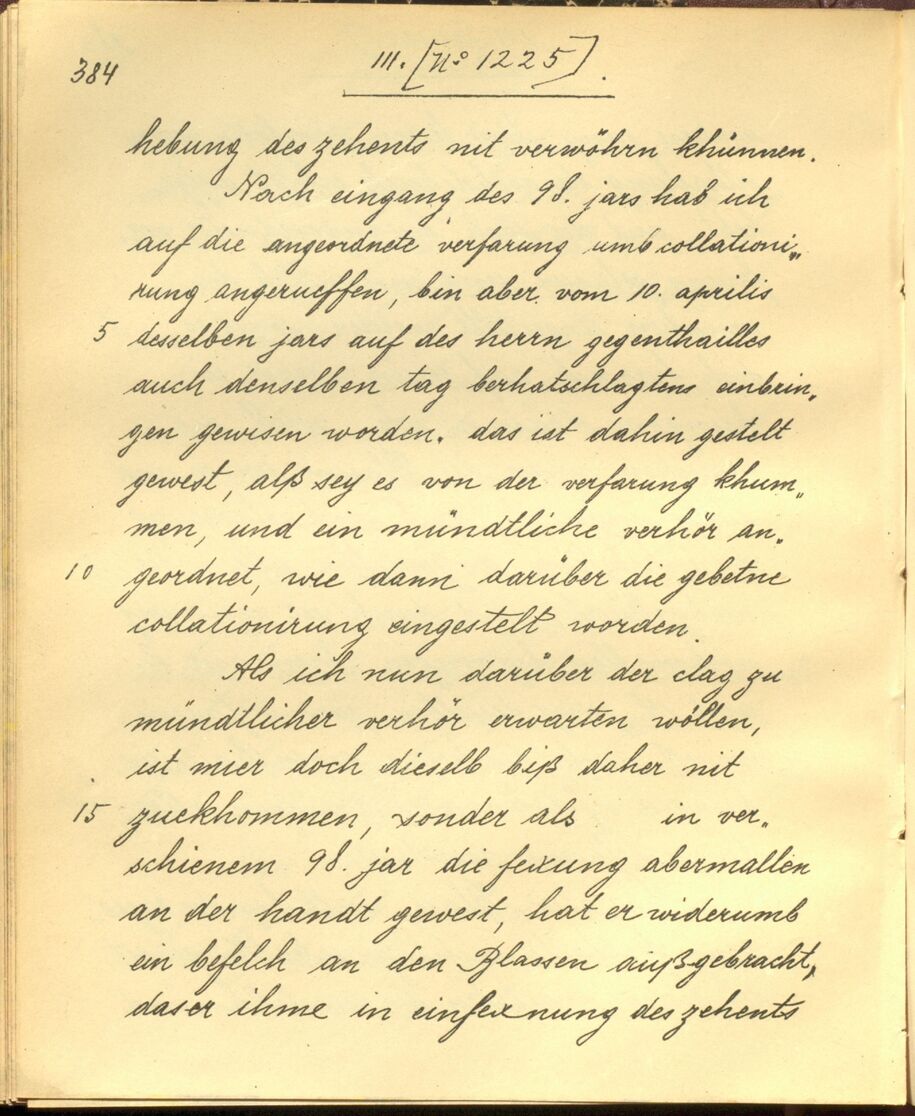 384
III. [No 1225].
hebung des zehents nit verwöhrn khünnen.
Nach eingang des 98. jars hab ich
auf die angeordnete verfarung umb collationi„
rung angerueffen, bin aber vom 10. aprilis
5 desselben jars auf des herrn gegenthailles
auch denselben tag berhatschlagtens einbrin„
gen gewisen worden. das ist dahin gestelt
gewest, alß sey es von der verfarung khum„
men, und ein mündtliche verhör an„
10 geordnet, wie dann darüber die gebetne
collationirung eingestelt worden.
Als ich nun darüber der clag zu
mündtlicher verhör erwarten wöllen,
ist mier doch dieselb biß daher nit
15 zuekhommen, sonder als in ver„
schienem 98. jar die fexung abermallen
an der handt gewest, hat er widerumb
ein befelch an den Blassen außgebracht,
das er ihme in einfexnung des zehents